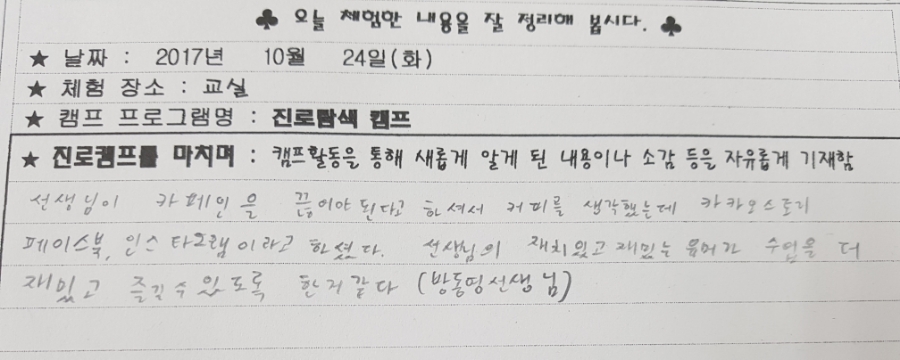 ♣ 오늘 체험한 내용을 잘 정리해 봅시다. ♣
★ 날짜 : 2017년 10월 24일(화)
★ 체험 장소 : 교실
★ 캠프 프로그램명 : 진로탐색 캠프
★ 진로캠프를 마치며 : 캠프활동을 통해 새롭게 알게 된 내용이나 소감 등을 자유롭게 기재함
선생님이 카페인을 끊어야 된다고 하셔서 커피를 생각했는데 카카오스토리
페이스북, 인스타그램이라고 하셨다. 선생님의 재치있고 재밌는 유머가 수업을 더
재밌고 즐길 수 있도록 한거 같다 (방동명선생님)